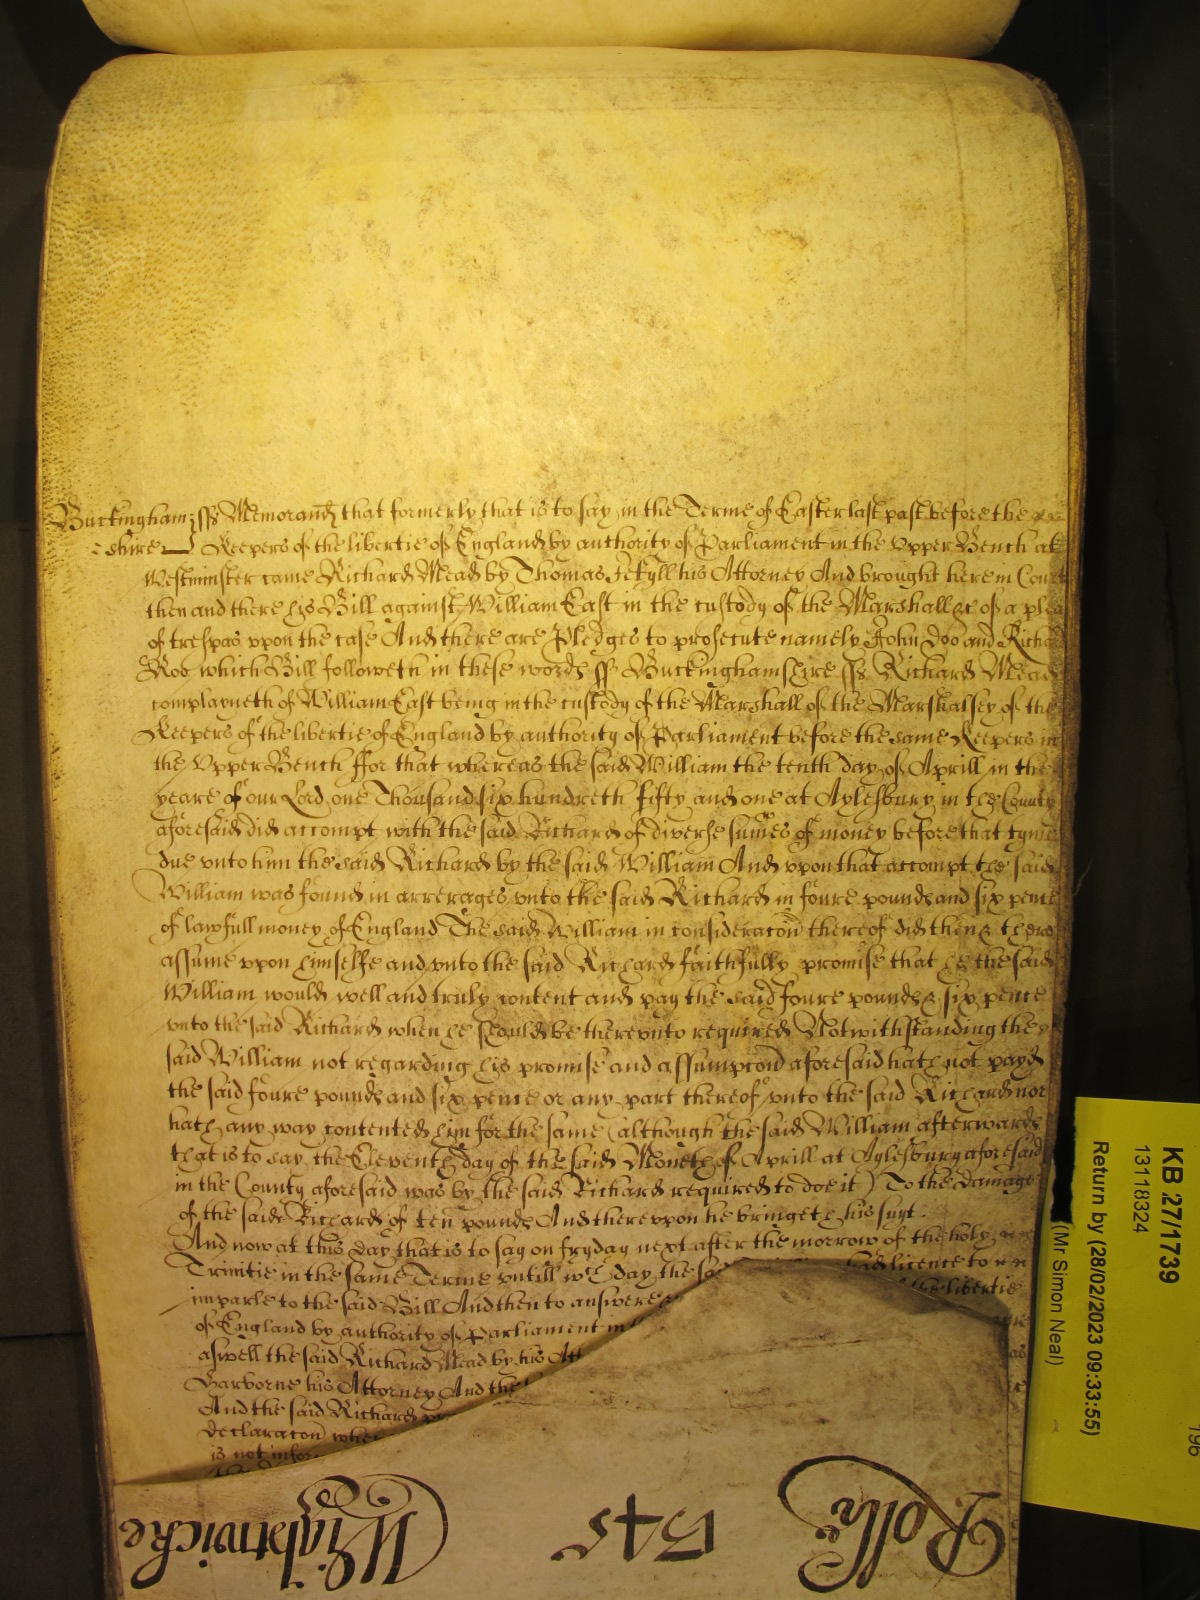 Buckingham ss Memorand that formerly that is to say in the Terme of Easter last past before the
shire Keepers of the libertie of England by authority of Parliament in the Upper Bench att
Westminster came Richard Mead by Thomas Jekyll his Attorney And brought here in Court
then and there his Bill against William East in the custody of the Marshall &c of a plea
of trespas vpon the case And there are Pledges to prosecute namely John Doo and Richard
Roo which Bill followeth in these words ss Buckinghamshire ss Richard Mead
complayneth of William East being in the custody of the Marshall of the Marshalsey of the
Keepers of the libertie of England by authority of Parliament before the same Keepers in
the Vpper Bench ffor that whereas the said William the tenth day of Aprill in the
yeare of our Lord one Thousand six hundreth fifty and one at Aylesbury in the County
aforesaid did accompt with the said Richard of diverse sumes of money before that tyme
due vnto him the said Richard by the said William And vpon that accompt the said
William was found in arrerages vnto the said Richard in foure pounds and six pence
of lawfull money of England The said William in consideracon thereof did then & there
assume vpon himselfe and vnto the said Richard faithfully promise that he the said
William would well and truly content and pay the said foure pounds & six pence
vnto the said Richard when he should be therevnto required Notwithstanding the
said William not regarding his promise and assumpcon aforesaid hath not payd
the said foure pounds and six pence or any part thereof vnto the said Richard nor
hath any way contented him for the same (although the said William afterwards
that is to say the Eleventh day of the said Moneth of Aprill at Aylesbury aforesaid
in the County aforesaid was by the said Richard required to doe it) To the damage
of the said Richard of ten pounds And therevpon he bringeth his suyt.
And now at this day that is to say on fryday next after the morrow of the holy
Trinitie in the same Terme vntill wch day the said had licence to
imparle to the said Bill And then to answere the libertie
of England by authority of Parliament in
aswell the said Richard Mead by his Att
Garborne his Attorney And the
And the said Richard
declaracon
is not
Wightwicke
1545
Rolle
KB 27/1739
13118324
Return by (28/02/2023 09:33:55)
(Mr Simon Neal)
196